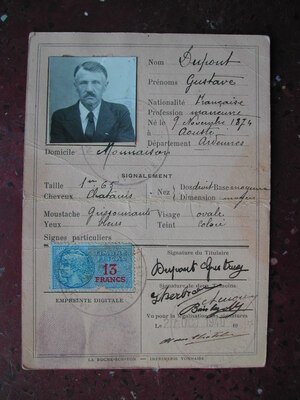 Nom Dupont
Prénoms Gustave
Nationalité Française
Profession manœuvre
Né le 9 Novembre 1874
à Aouste
Département Ardennes
Domicile
SIGNALEMENT
Taille 1m 65
Cheveux Chatains
Moustache Grisonnante
Yeux bleus
Signes particuliers
Nez
Dos droit Base moyenne
Dimension moyen
Visage ovale
Teint coloré
13
FRANCS
EMPREINTE DIGITALE
Signature du Titulaire
Dupont Gustave
Signature de deux témoins.
Vu pour la légalisation des signatures
Le
LA ROCHE-SUR-YON — IMPRIMERIE YONNAISE